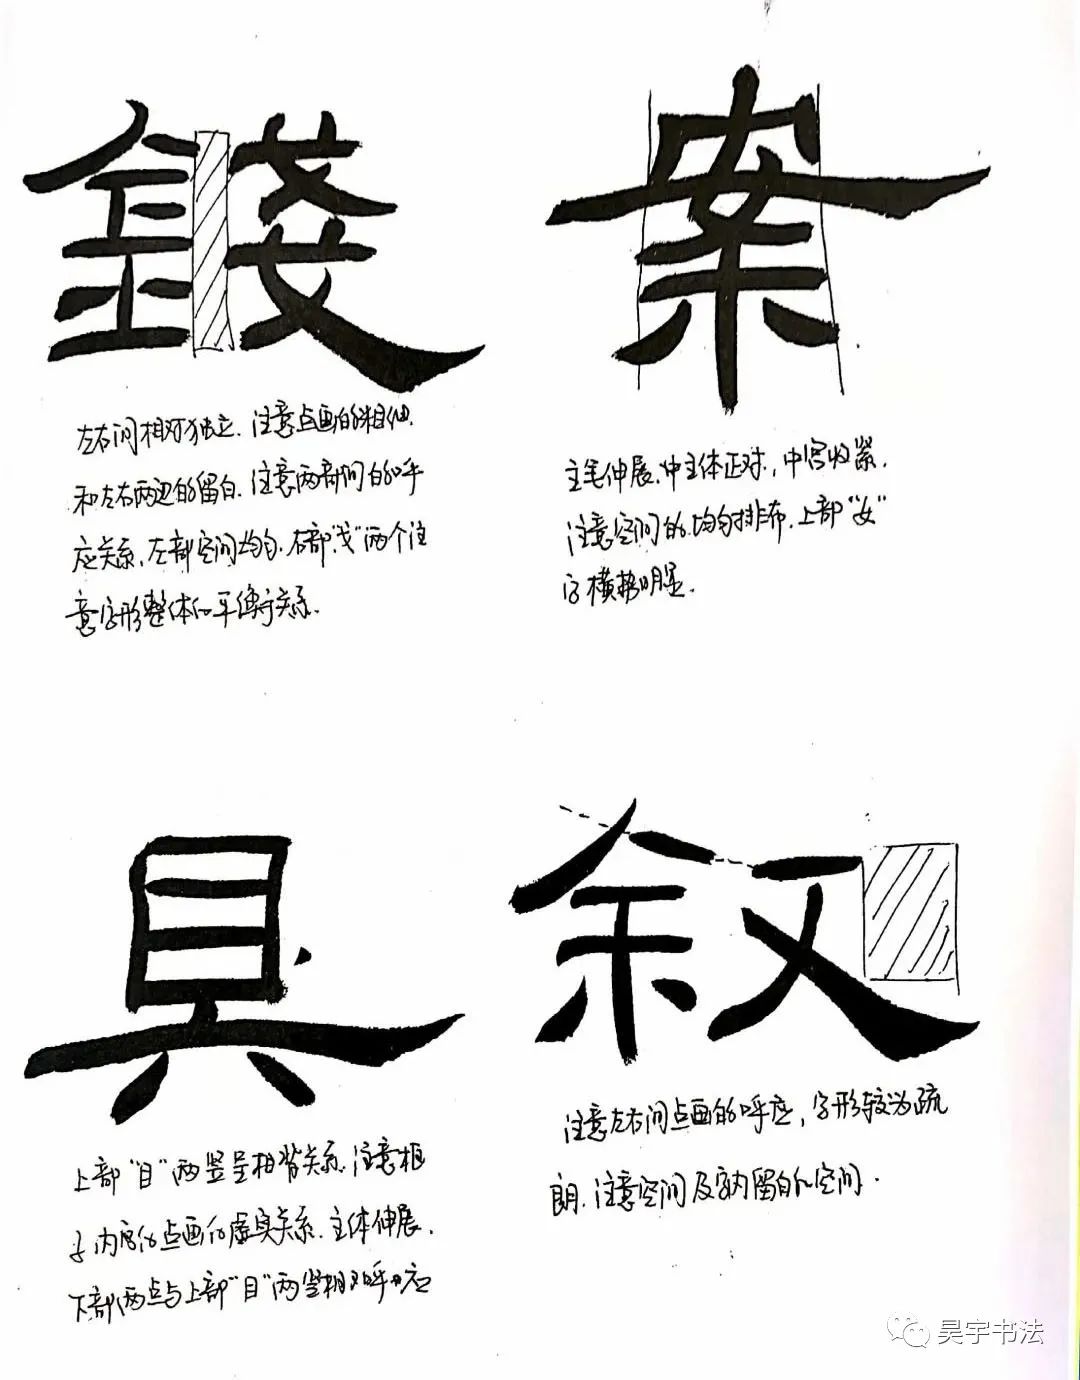 錢
左右间相对独立.注意点画的粗细.
和左右两边的留白.注意两部间白的呼
应关系.左部空间均匀.右部"戈"两个注
意字形整体的平衡关系.
案
主笔伸展.中主体正对,中宫收紧.
注意空间的均匀排布.上部"女"
字横势明显.
具
上部"目"两竖呈相背关系.注意框
子内部的点画的虚实关系.主体伸展.
下部两点与上部"目"两竖相对呼应
叙
注意左右间点画的呼应,字形较为疏
朗.注意空间及字内留白的空间.
昊宇书法